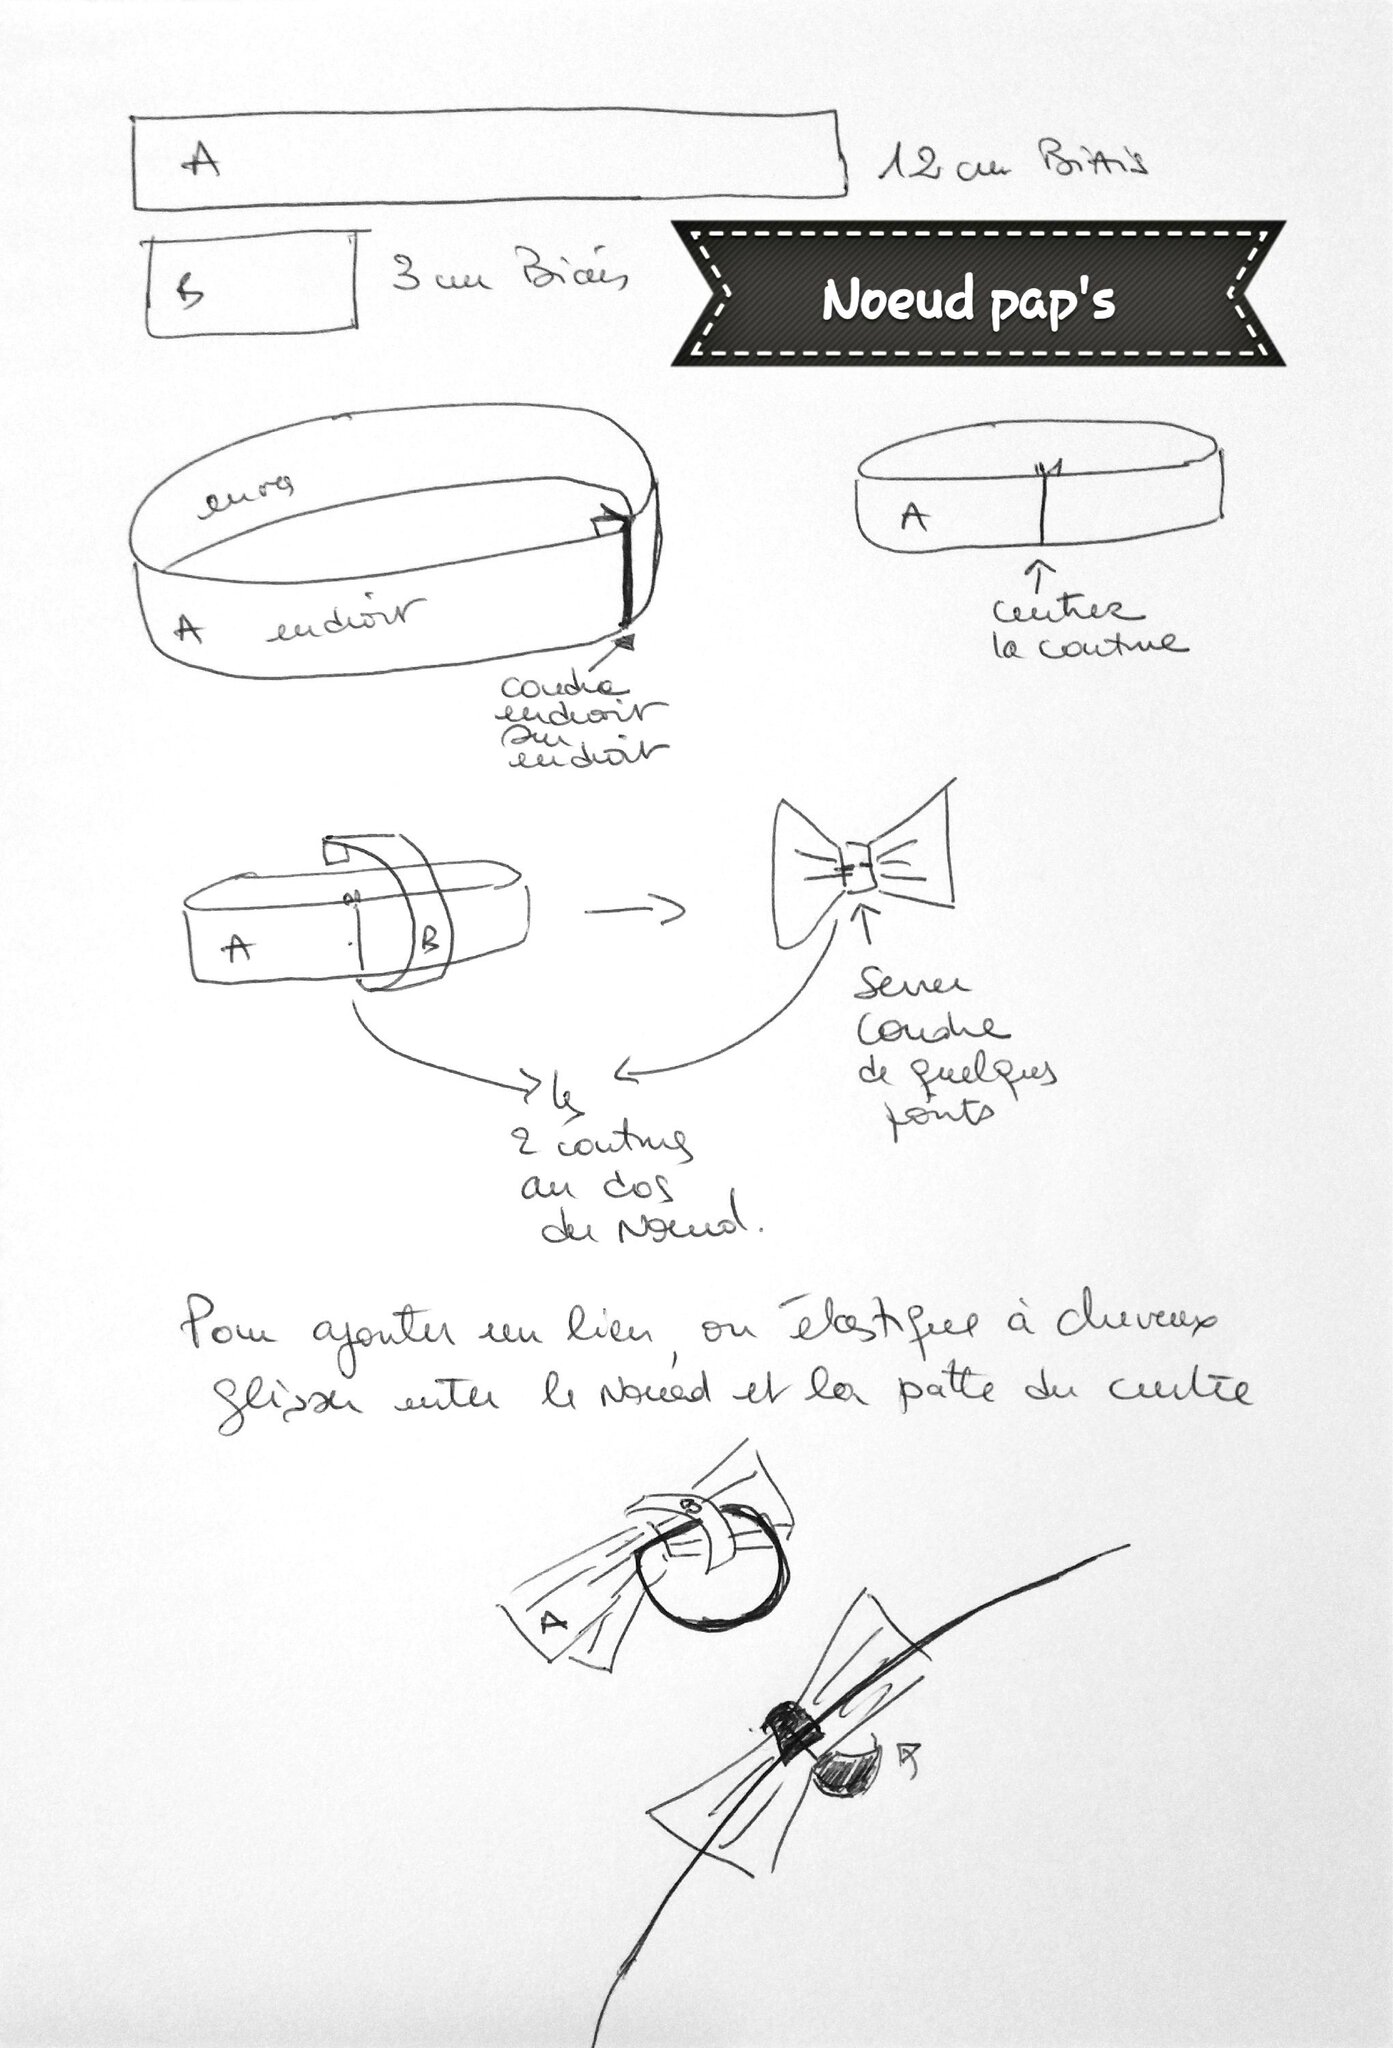 A
12 cm BiAis
B
3 cm Biais
Noeud pap's
envers
A endroit
coudre
endroit
sur
endroit
A
centrer
la couture
A
B
Serrer
Coudre
de quelques
points
les
2 coutures
au dos
du Noeud.
Pour ajouter un lien, ou élastique à cheveux
glisser entre le Noeud et la patte du centre
B
A